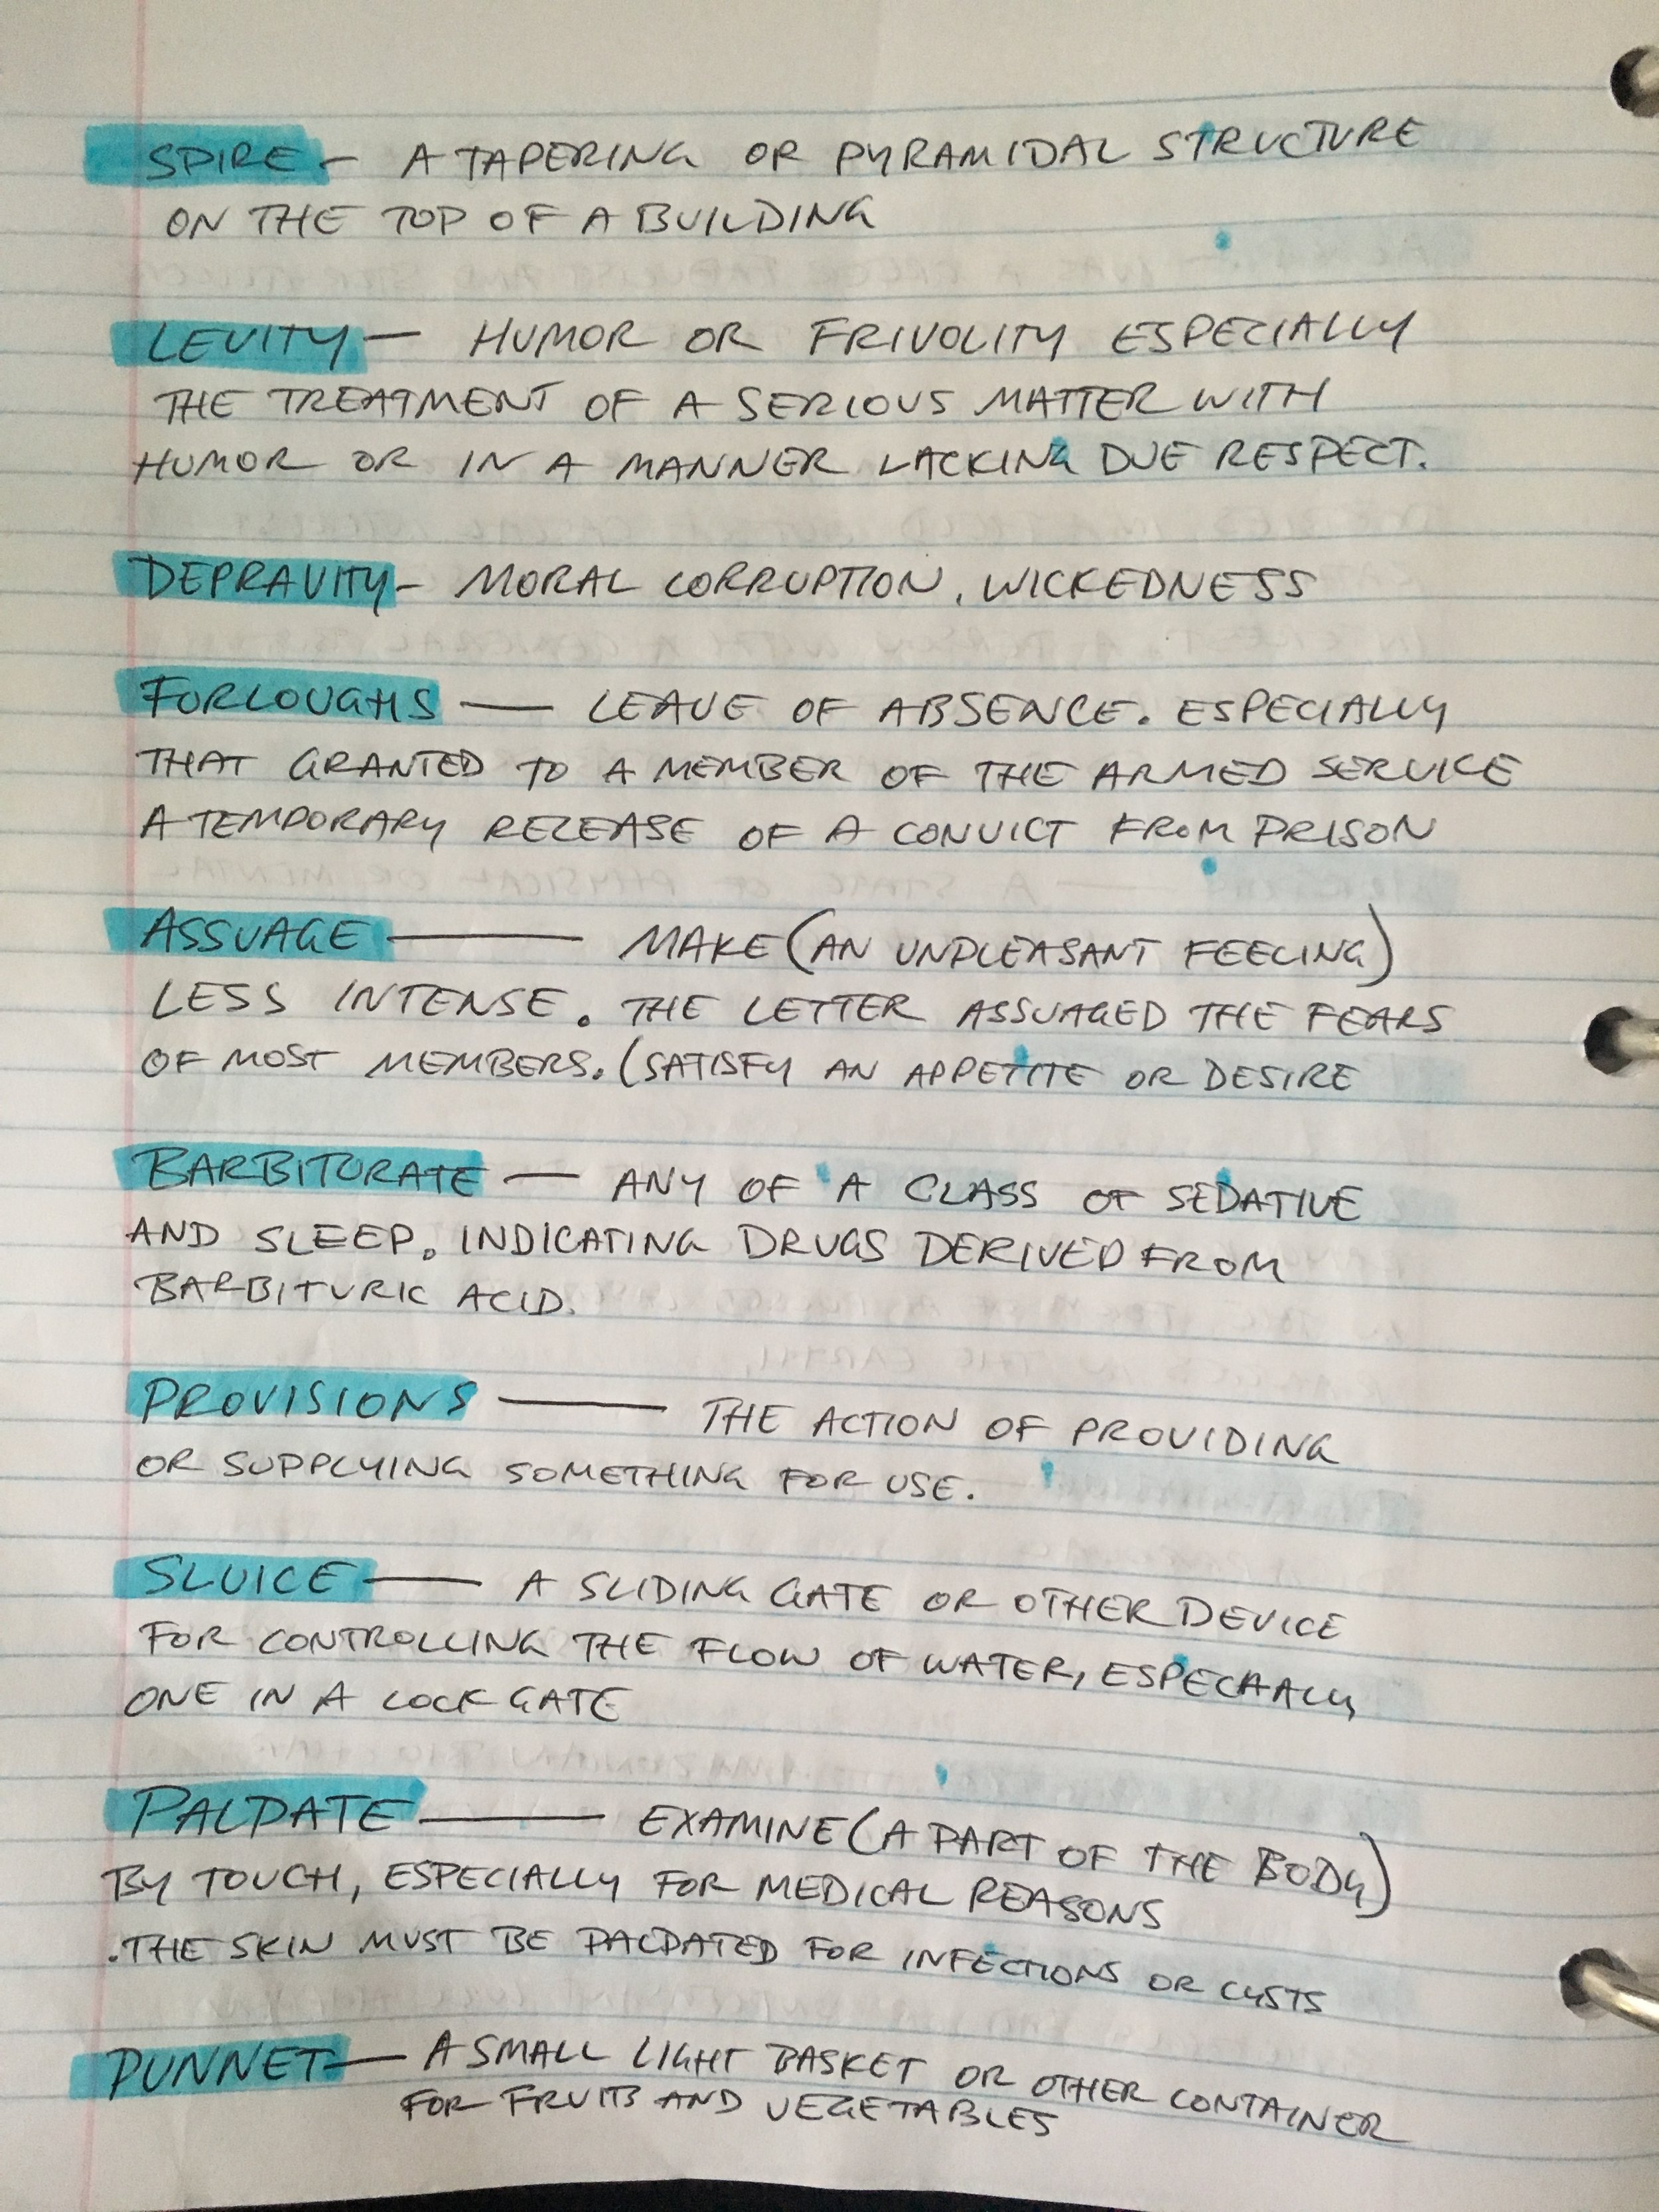 SPIRE - A TAPERING OR PYRAMIDAL STRUCTURE
ON THE TOP OF A BUILDING
LEVITY - HUMOR OR FRIVOLITY ESPECIALLY
THE TREATMENT OF A SERIOUS MATTER WITH
HUMOR OR IN A MANNER LACKING DUE RESPECT.
DEPRAVITY - MORAL CORRUPTION, WICKEDNESS
FORLOUGHS — LEAVE OF ABSENCE. ESPECIALLY
THAT GRANTED TO A MEMBER OF THE ARMED SERVICE
A TEMPORARY RELEASE OF A CONVICT FROM PRISON
ASSUAGE — MAKE (AN UNPLEASANT FEELING)
LESS INTENSE. THE LETTER ASSUAGED THE FEARS
OF MOST MEMBERS. (SATISFY AN APPETITE OR DESIRE
BARBITORATE — ANY OF A CLASS OF SEDATIVE
AND SLEEP. INDICATING DRUGS DERIVED FROM
BARBITURIC ACID.
PROVISIONS — THE ACTION OF PROVIDING
OR SUPPLYING SOMETHING FOR USE.
SLUICE — A SLIDING GATE OR OTHER DEVICE
FOR CONTROLLING THE FLOW OF WATER, ESPECIALLY
ONE IN A LOCK GATE
PALPATE — EXAMINE (A PART OF THE BODY)
BY TOUCH, ESPECIALLY FOR MEDICAL REASONS
.THE SKIN MUST BE PALPATED FOR INFECTIONS OR CYSTS
PUNNET — A SMALL LIGHT BASKET OR OTHER CONTAINER
FOR FRUITS AND VEGETABLES